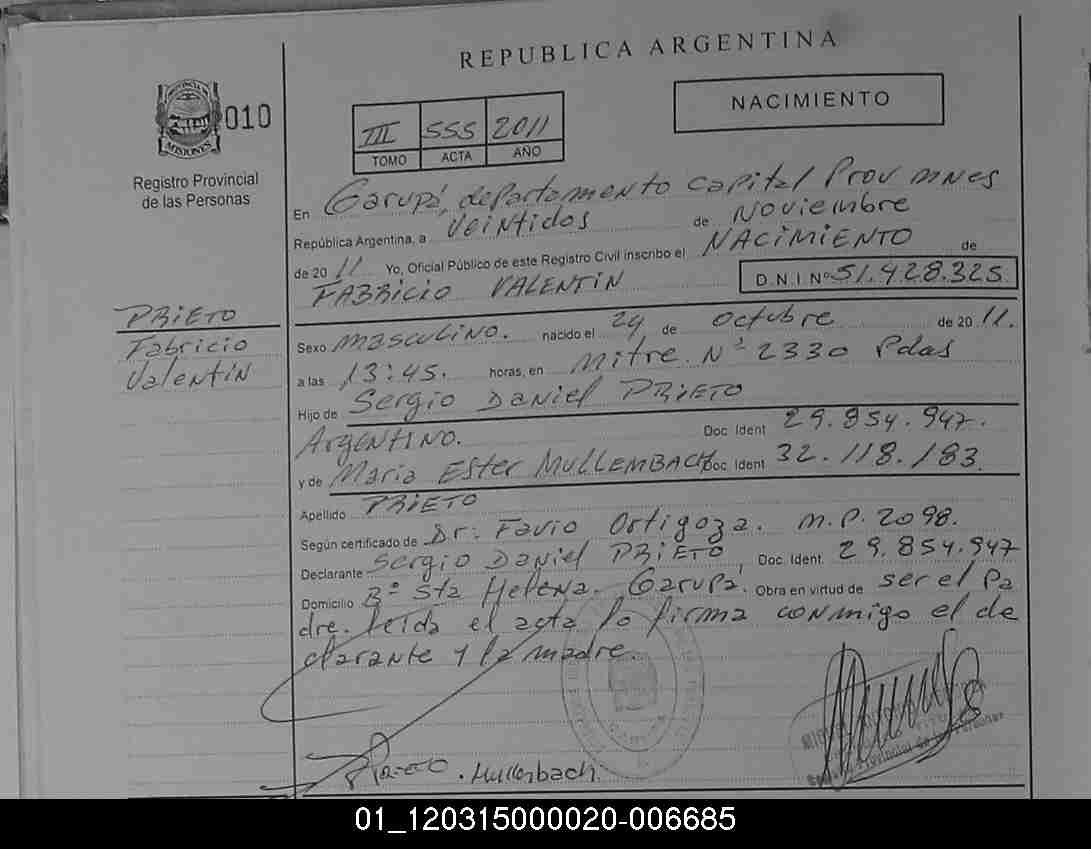 REPUBLICA ARGENTINA
PROVINCIA DE
MISIONES
010
Registro Provincial
de las Personas
III SSS 2011
TOMO ACTA AÑO
NACIMIENTO
En Garupá, departamento capital Prov mnes
República Argentina, a veintidos de Noviembre
de 20 11 Yo, Oficial Público de este Registro Civil inscribo el NACIMIENTO de
FABRICIO VALENTIN D.N.I Nº 51.428.325
PRIETO
Fabricio
Valentin
Sexo masculino. nacido el 24 de octubre de 20 11.
a las 13:45. horas, en mitre Nº 2330 Pdas
Hijo de Sergio Daniel PRIETO
ARGENTINO. Doc Ident 29.854.947.
y de Maria Ester MULLEMBACH Doc. Ident 32.118.183.
Apellido PRIETO
Según certificado de Dr: Favio Ortigoza. m.p. 2098.
Declarante Sergio Daniel PRIETO, Doc. Ident. 29.854.947
Domicilio Bº Sta Helena. Garupa. Obra en virtud de ser el Pa
dre. leida el acta lo firma conmigo el de
clarante y la madre.
PRIETO. Mullembach.
Provincial de las Personas
01_120315000020-006685